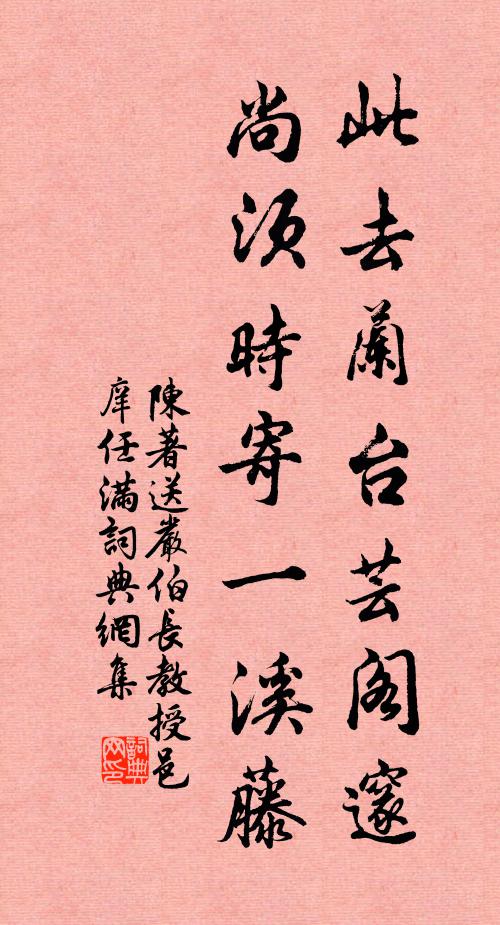 此去蘭台芸閣邃
尚須時寄一溪藤
陳著送嚴伯長教授邑
庠任滿詞典網集
詞典網印